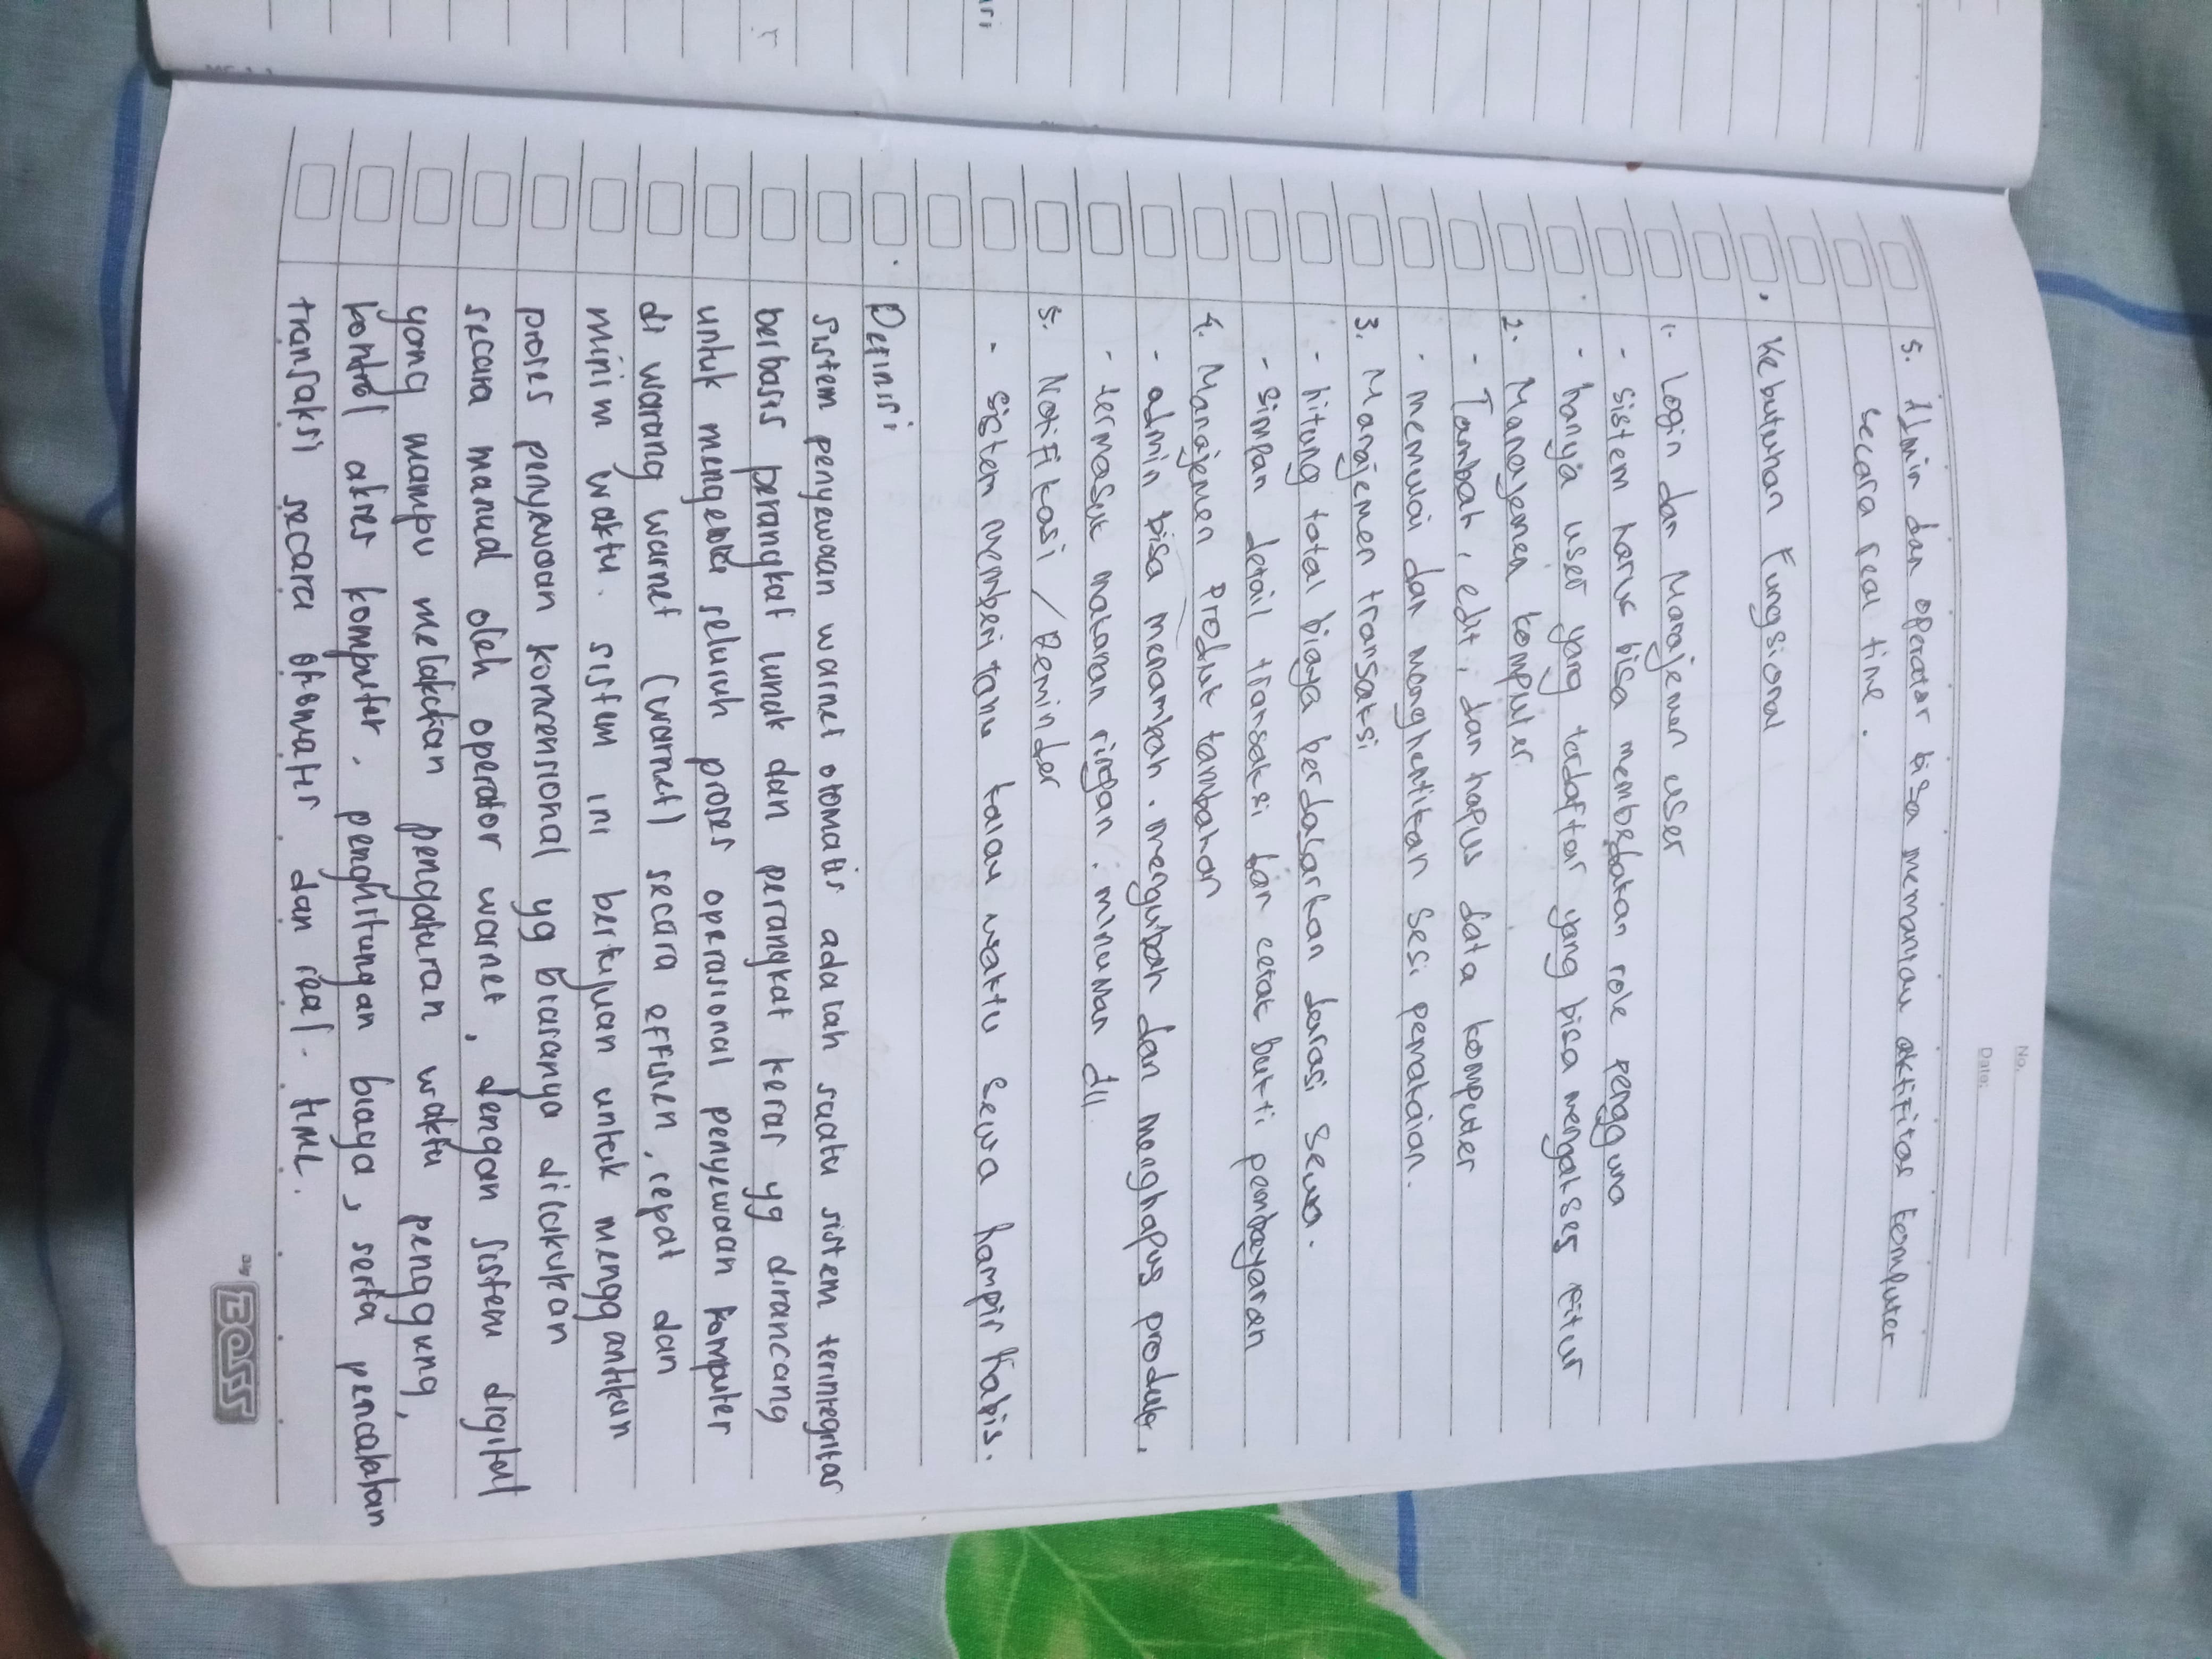 No.
Date:
5. Admin dan operator bisa memantau aktifitas komputer
secara real time.
• Kebutuhan Fungsional
1. Login dan Manajemen user
- sistem harus bisa membedakan role pengguna
- hanya user yang terdaftar yang bisa mengakses fitur
2. Manajemen komputer
- Tambah, edit, dan hapus data komputer
- memulai dan menghentikan sesi pemakaian.
3. Manajemen transaksi
- hitung total biaya berdasarkan durasi sewa.
- simpan detail transaksi dan cetak bukti pembayaran
4. Manajemen Produk tambahan
- admin bisa menambah, mengubah dan menghapus produk,
- termasuk makanan ringan, minuman dll
5. Notifikasi / Reminder
- sistem memberitahu kalau waktu sewa hampir habis.
• Definisi
Sistem penyewaan warnet otomatis adalah suatu sistem terintegritas
berbasis perangkat lunak dan perangkat keras yg dirancang
untuk mengelola seluruh proses operasional penyewaan komputer
di warung warnet (warnet) secara effisien, cepat dan
minim waktu. sistem ini bertujuan untuk menggantikan
proses penyewaan konvensional yg biasanya dilakukan
secara manual oleh operator warnet, dengan sistem digital
yang mampu melakukan pengaturan waktu pengguna,
kontrol akses komputer, penghitungan biaya, serta pencatatan
transaksi secara otomatis dan real-time.
By BOSS